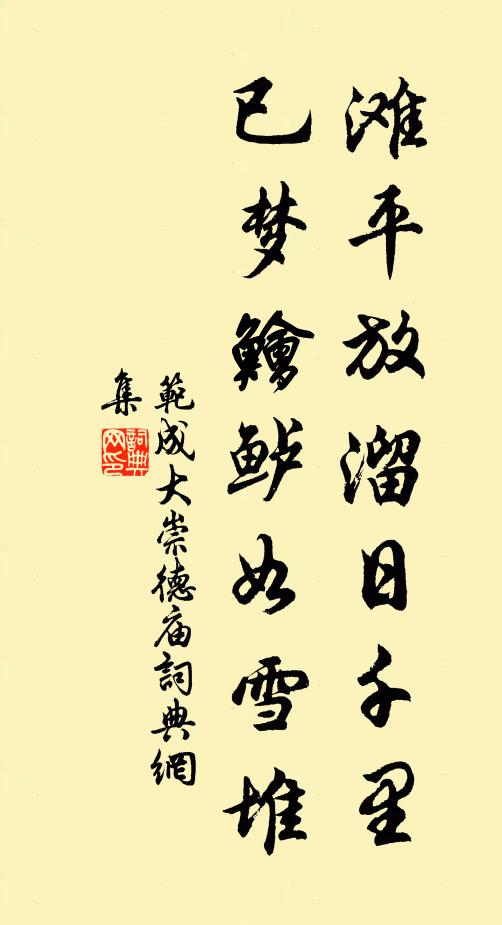 滩平放溜日千里
已梦鱠鲈如雪堆
範成大崇德庙詞典網
集
詞典网印